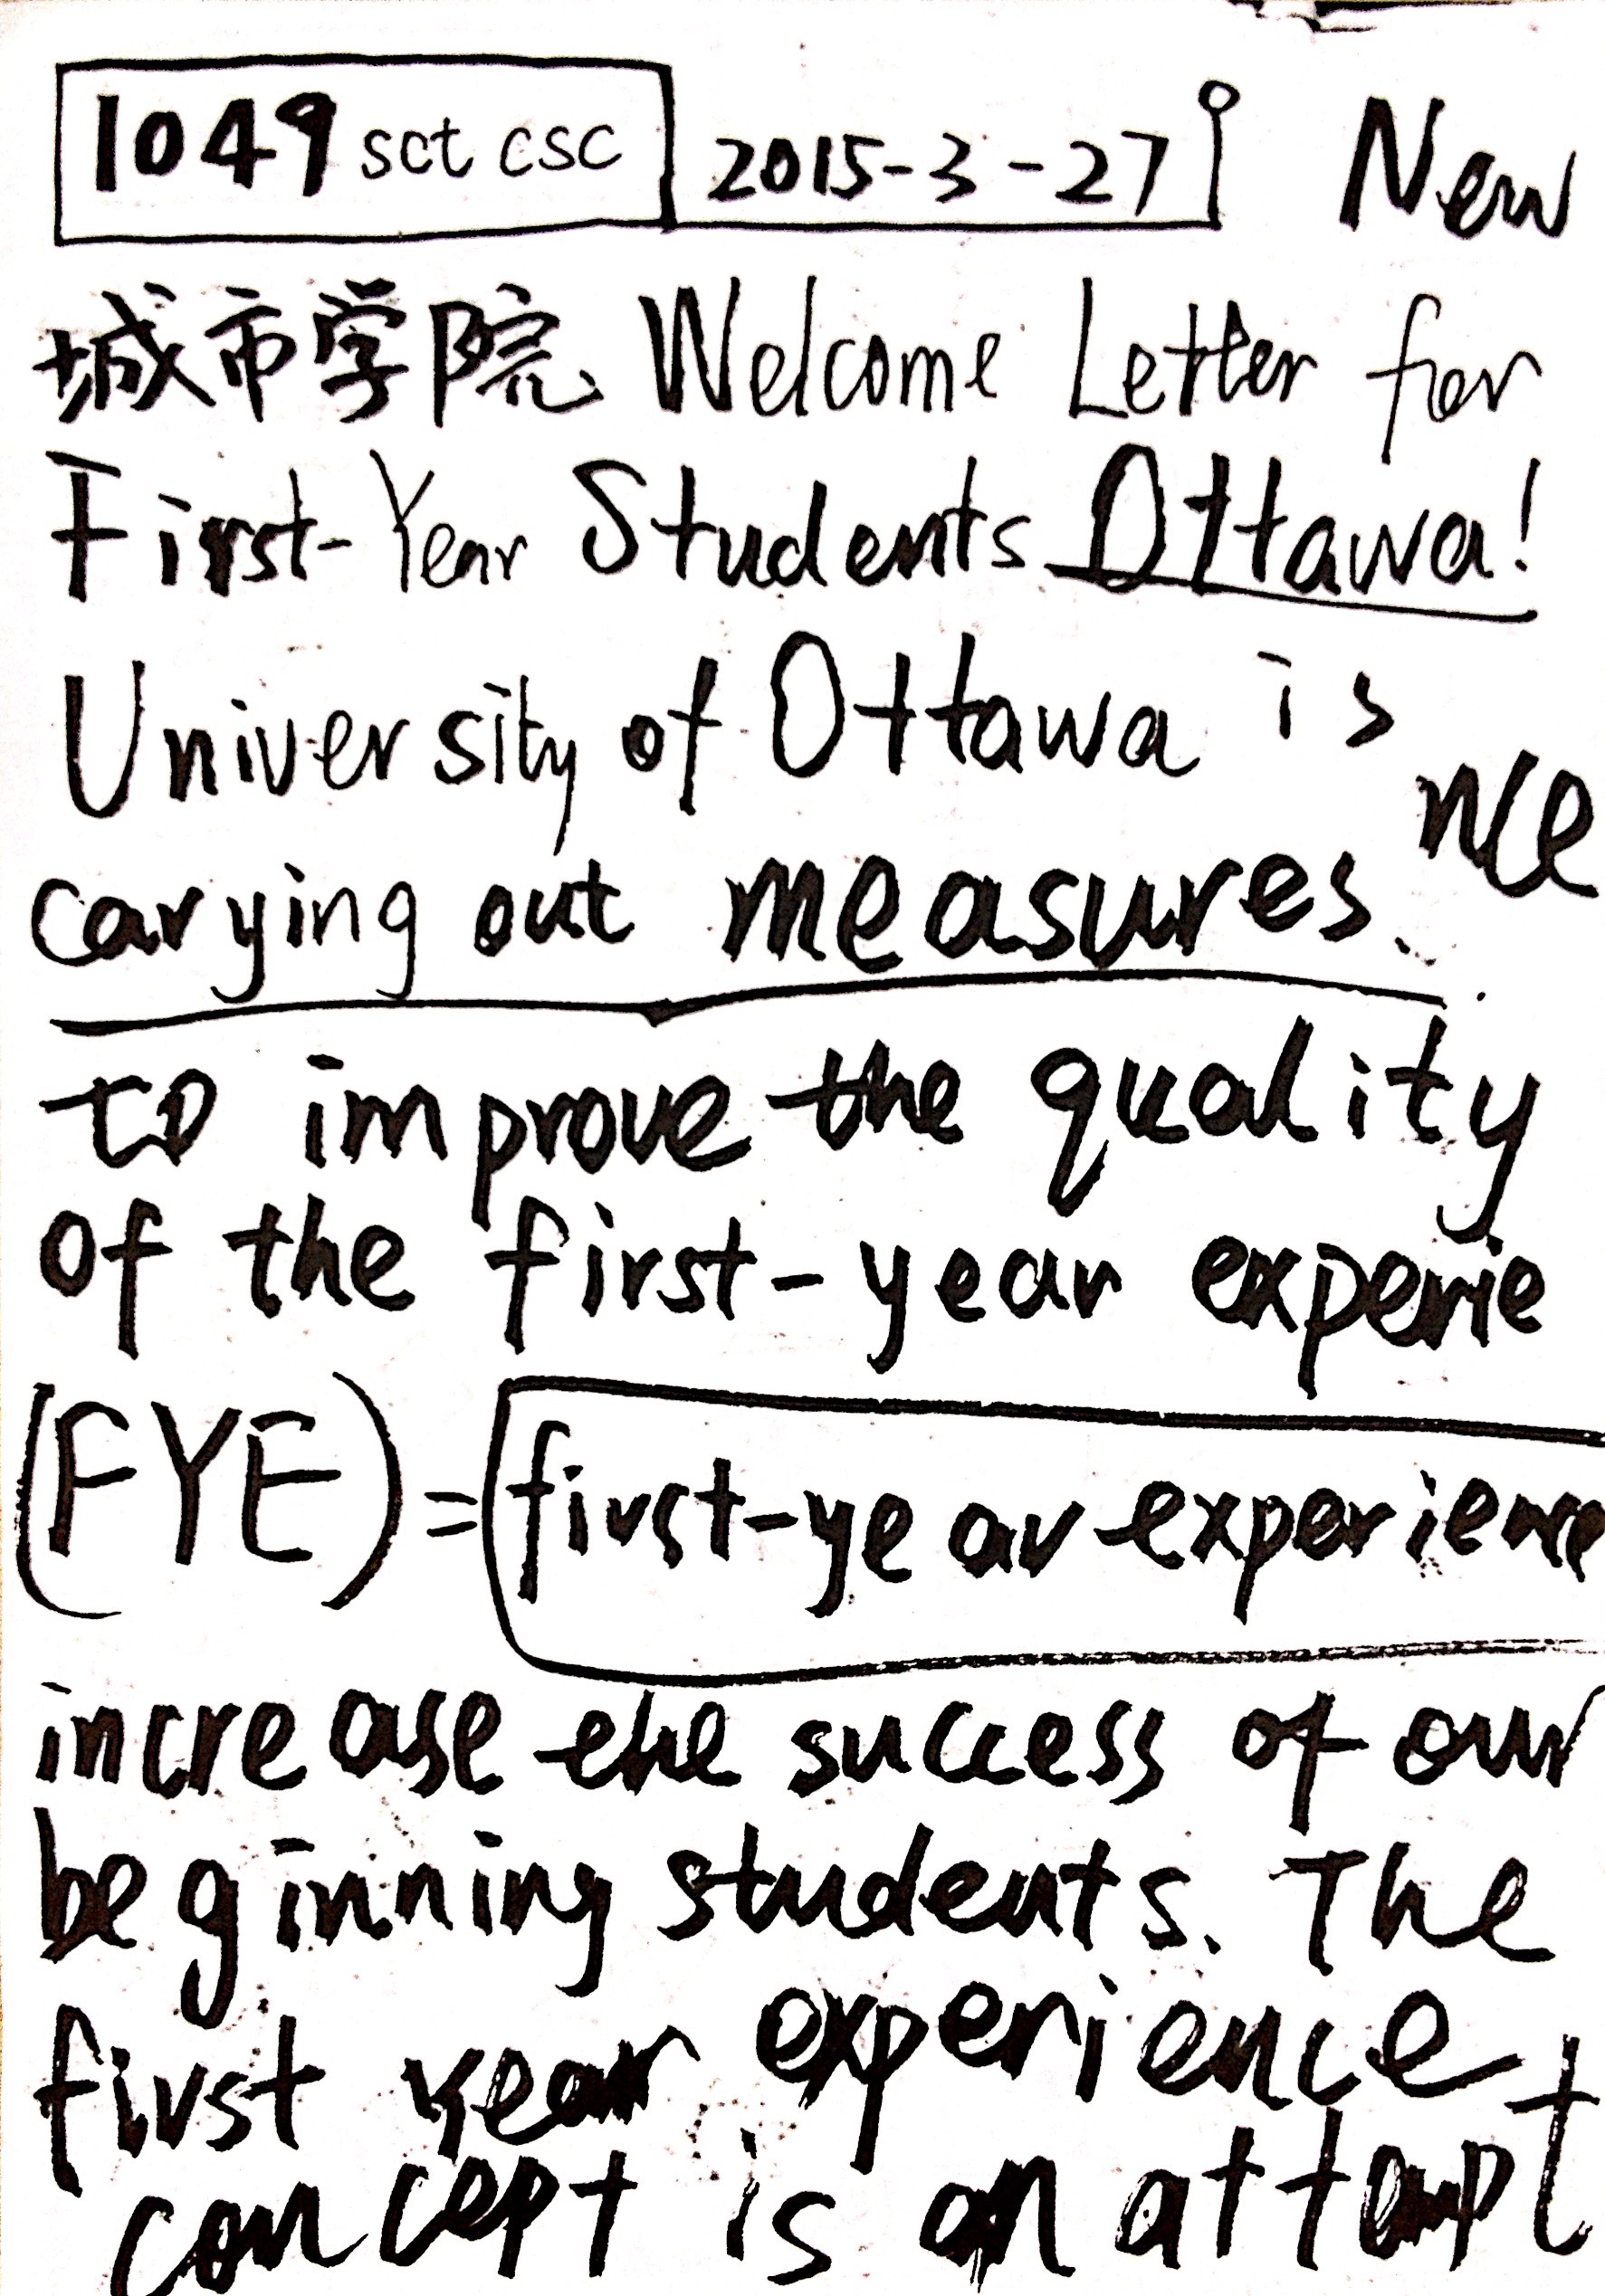 1049 sct csc 2015-3-27 New
城市学院 Welcome Letter for
First-Year Students Ottawa!
University of Ottawa is
nce
carrying out measures
to improve the quality
of the first-year experie
(FYE) = first-year experience
increase the success of our
beginning students. The
first year experience
concept is an attempt